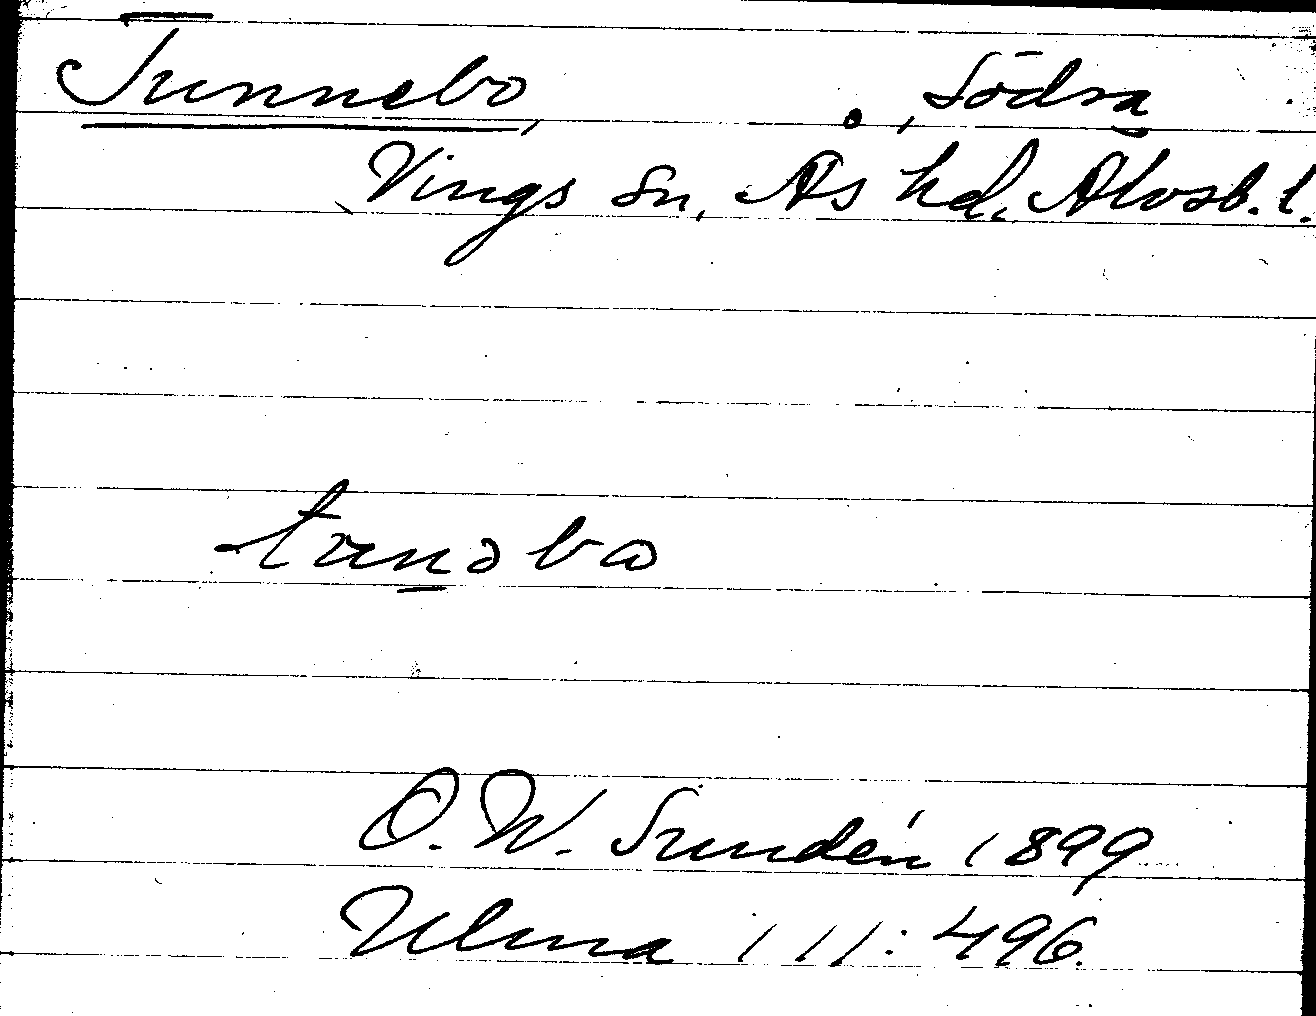 Tunnebo, , Södra
Vings sn, Ås hd, Älvsb. l.
tunəbo
O. W. Sundén 1899
Ulma 111:496.